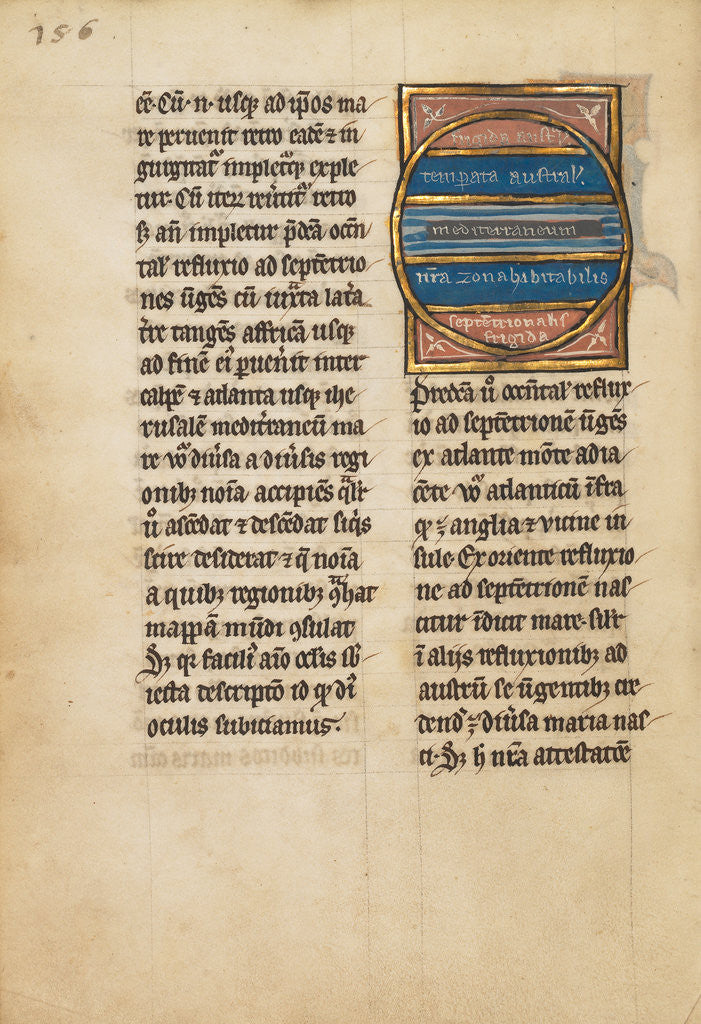 156
eē. Cū. n. usq; ad ip̄os ma
re peruenit retro eadē ⁊ in
gurgitat᷑ impletq; exple
tur. Cū iterꝫ retro
sꝫ añ impletur p̄dc̄a occn̄
tal' refluxio ad septētrio
nes ūgēs cū iuxta lat̓a
tr̄e tangēs affricā usq;
ad finē ei᷒ puen̓it inter
calpē ⁊ atlanta usq; ihe
rusalē medit̓raneū ma
re ū̊ diũsa a diũsis regi
onibꝫ noīa accipiēs qͣlr̄
ū ascēdat ⁊ descēdat siq̓s
scire desiderat ⁊ q̄ noīa
a quibꝫ regionibꝫ ꝯͭhat
mappā mūdi ꝯsulat
Sꝫ qꝛ facili᷒ aīo sb̄
iecta descriptō id qđ di᷒
oculis subiciamus.
frigida austͬ.
temp̄ata austral'.
mediterraneum
nr̄a zona habitabilis
septētrionalis
frigida
Predc̄a ū occn̄tal' reflux
io ad septētrionē ūgēs
ex atlante mōte adia
cēte ū̊ atlanticū īfra
qđ ē anglia ⁊ vicine in
sule. Ex oriente refluxio
ne ad septētrionē nas
citur īdicū mare. sil'r
ī alijs refluxionibꝫ ad
austrū se ūgentibꝫ cre
dend' ē diũsa maria nas
ci. Sꝫ h̄ nr̄a attestatōe